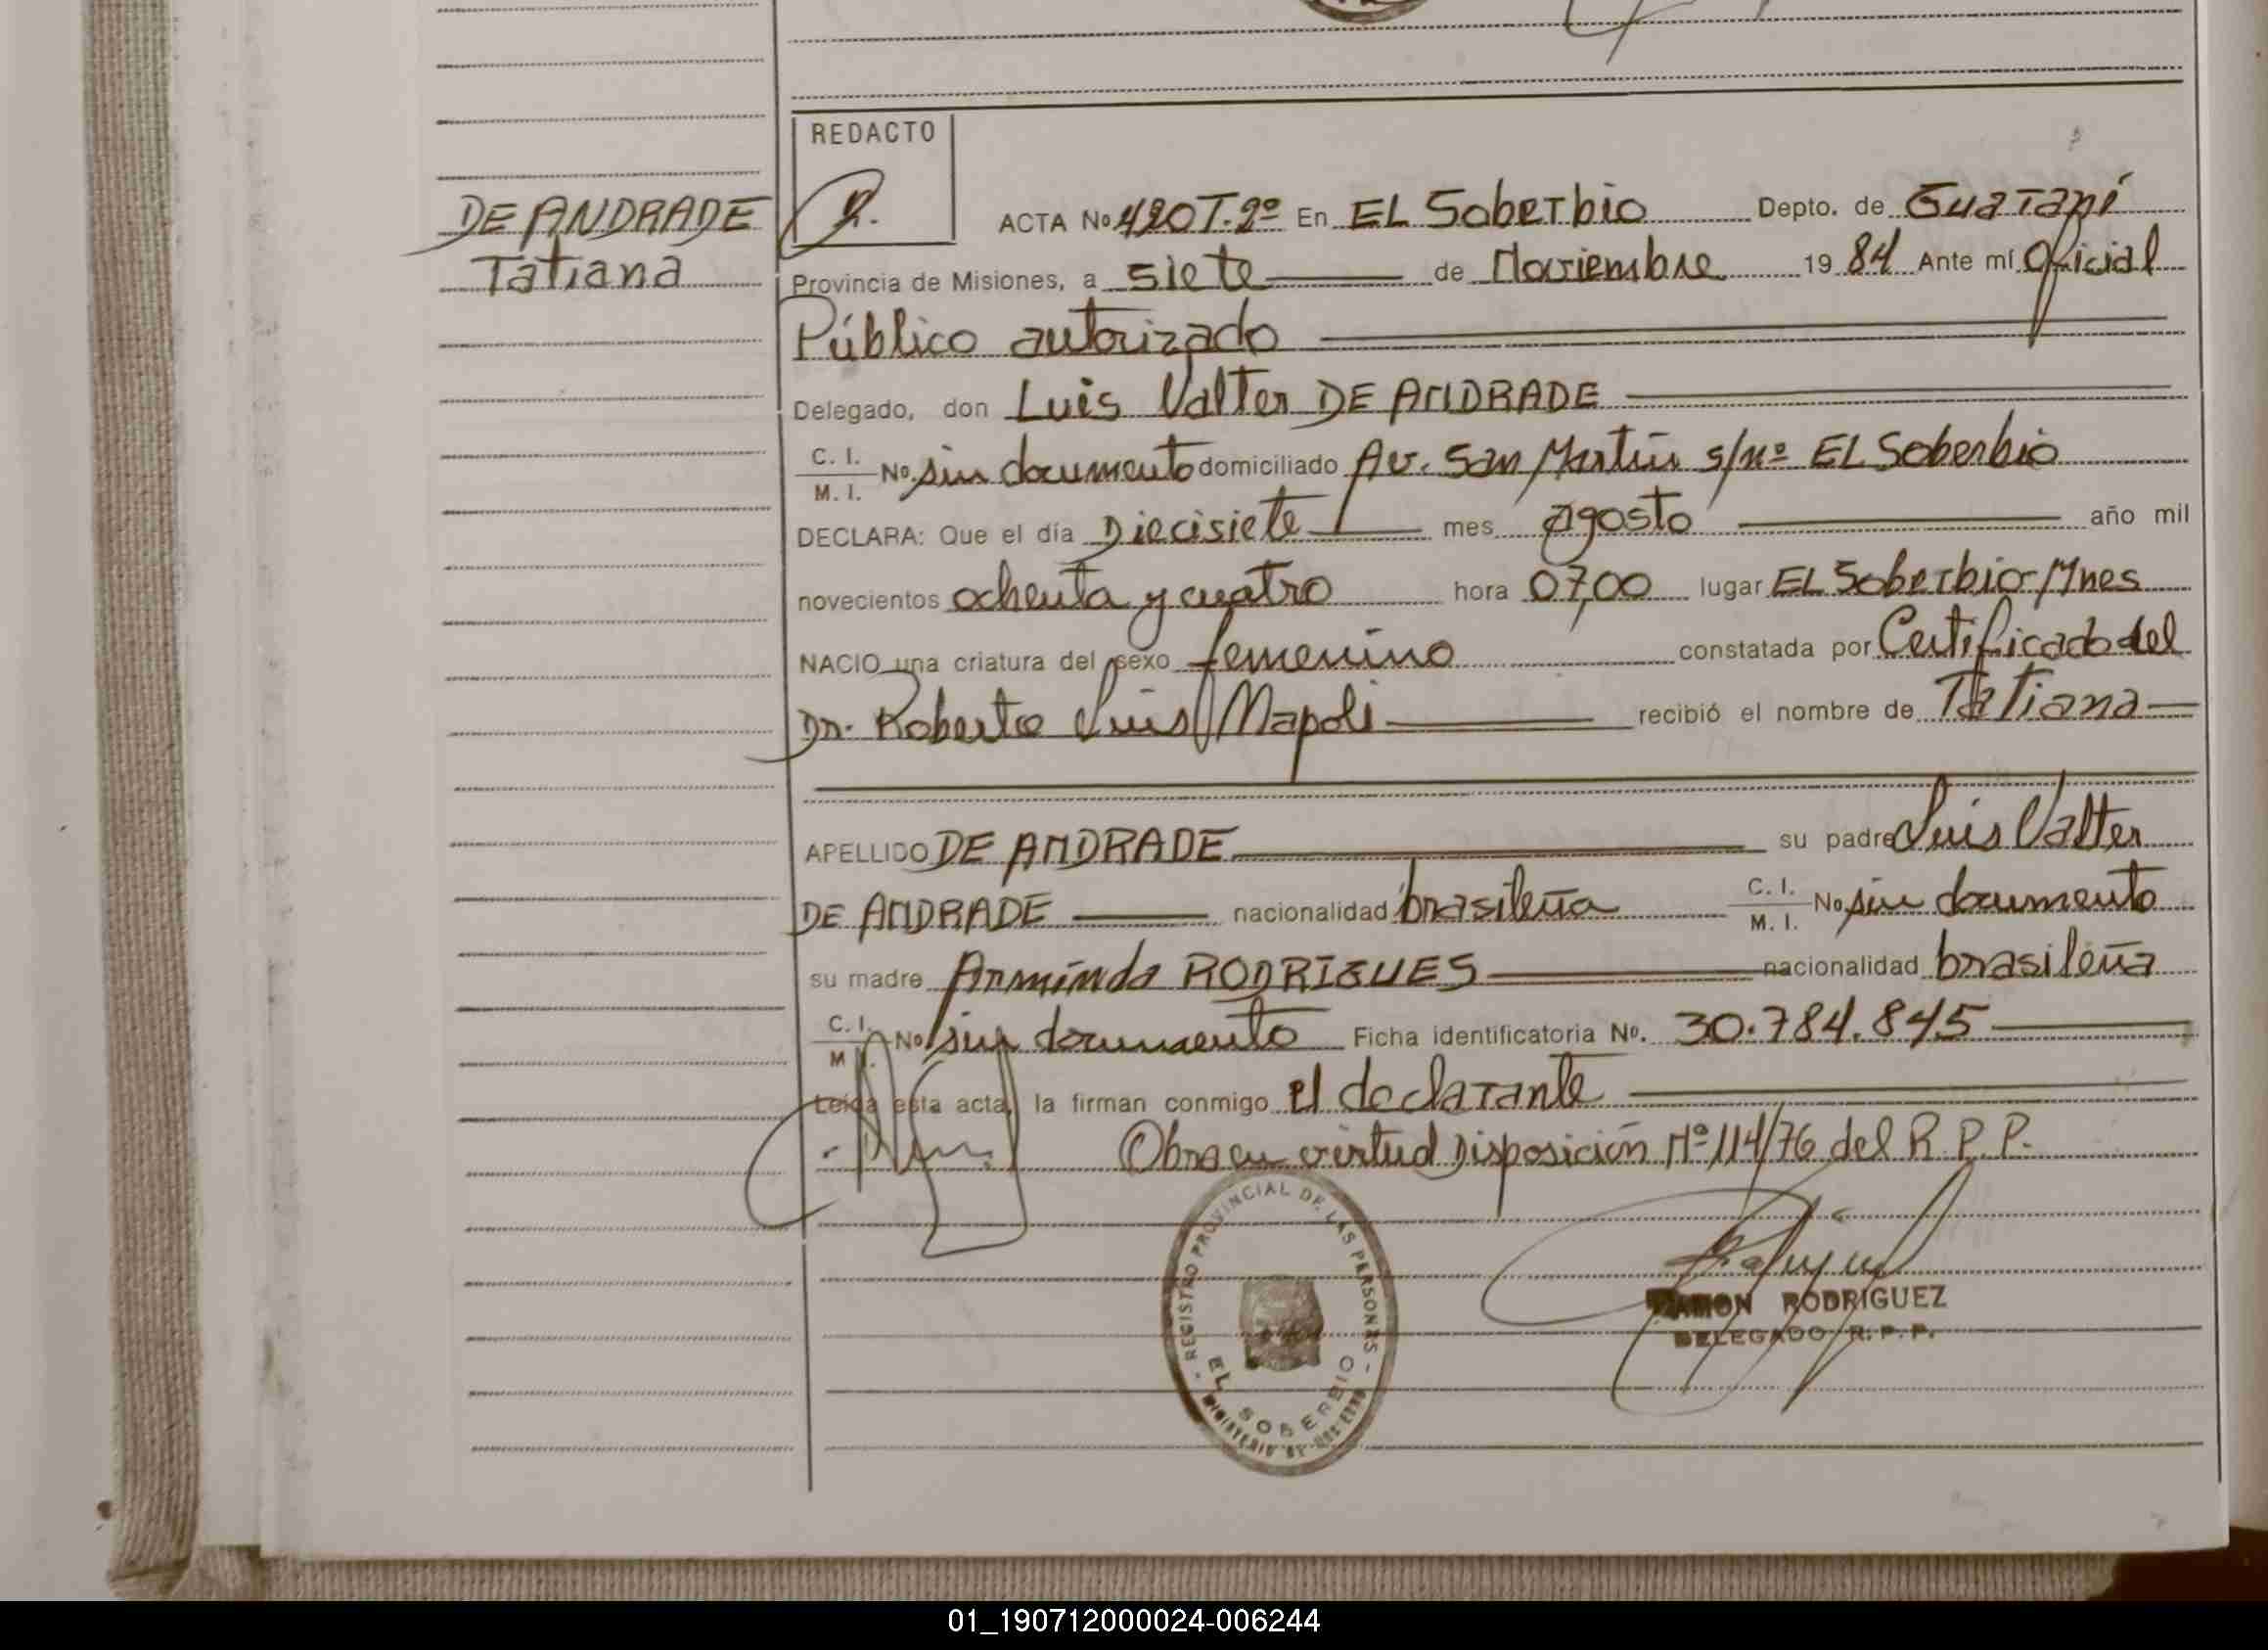 REDACTO
R.
DE ANDRADE
Tatiana
ACTA No 420 T.2º En EL Soberbio Depto. de Guaraní
Provincia de Misiones, a siete de Noviembre 19 84 Ante mí Oficial
Público autorizado
Delegado, don Luis Valter DE ANDRADE
C. I. / M. I. No. sin documento domiciliado Av. San Martín s/nº EL Soberbio
DECLARA: Que el día Diecisiete mes agosto año mil
novecientos ochenta y cuatro hora 07,00 lugar EL Soberbio-Mnes
NACIO una criatura del sexo femenino constatada por Certificado del
Dr. Roberto Luis Napoli recibió el nombre de Tatiana
APELLIDO DE ANDRADE su padre Luis Valter
DE ANDRADE nacionalidad brasileña C. I. / M. I. No sin documento
su madre Arminda RODRIGUES nacionalidad brasileña
C. I. / M. I. No sin documento Ficha identificatoria No. 30.784.845
Leida esta acta, la firman conmigo el declarante
Obra en virtud Disposición Nº 114/76 del R.P.P.
- REGISTRO PROVINCIAL DE LAS PERSONAS -
EL SOBERBIO
RAMON RODRIGUEZ
DELEGADO R.P.P.
01_190712000024-006244